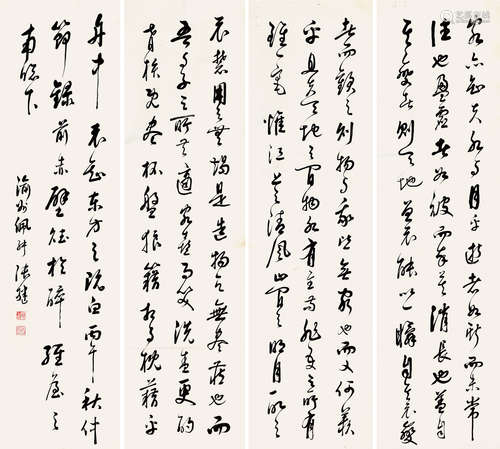 客亦知夫水與月乎逝者如斯而未嘗
往也盈虛者如彼而卒莫消長也蓋自
其變者則天地曾不能以一瞬自其不變
者而觀之則物與我皆無窮也而又何羨
乎且夫天地之間物各有主苟非吾之所有
雖一毫惟江上清風山間之明月取之
不禁用之無竭是造物者無盡藏也而
吾與子之所共適客喜而笑洗盞更酌
肴核既盡杯盤狼藉相與枕藉乎
舟中不知東方之既白丙午秋
節錄前赤壁賦於醉之
南窗下
渝州